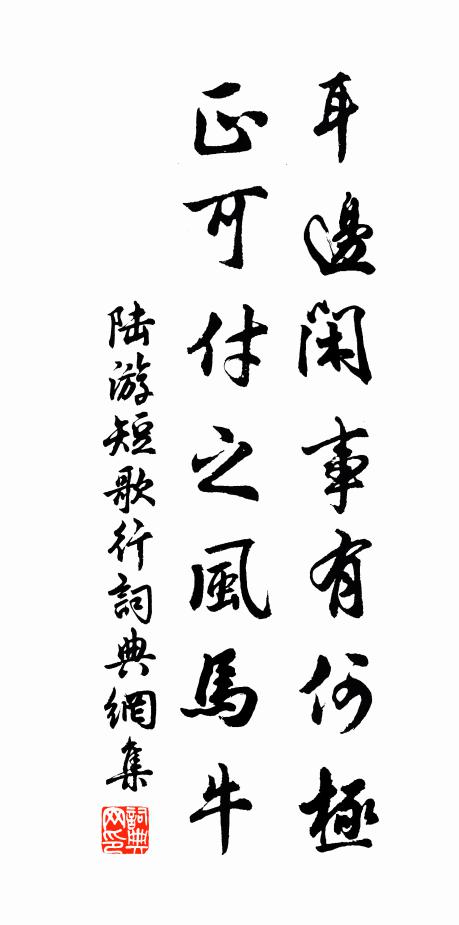 耳邊閑事有何極
正可付之風馬牛
陆游短歌行詞典網集
詞典
网印